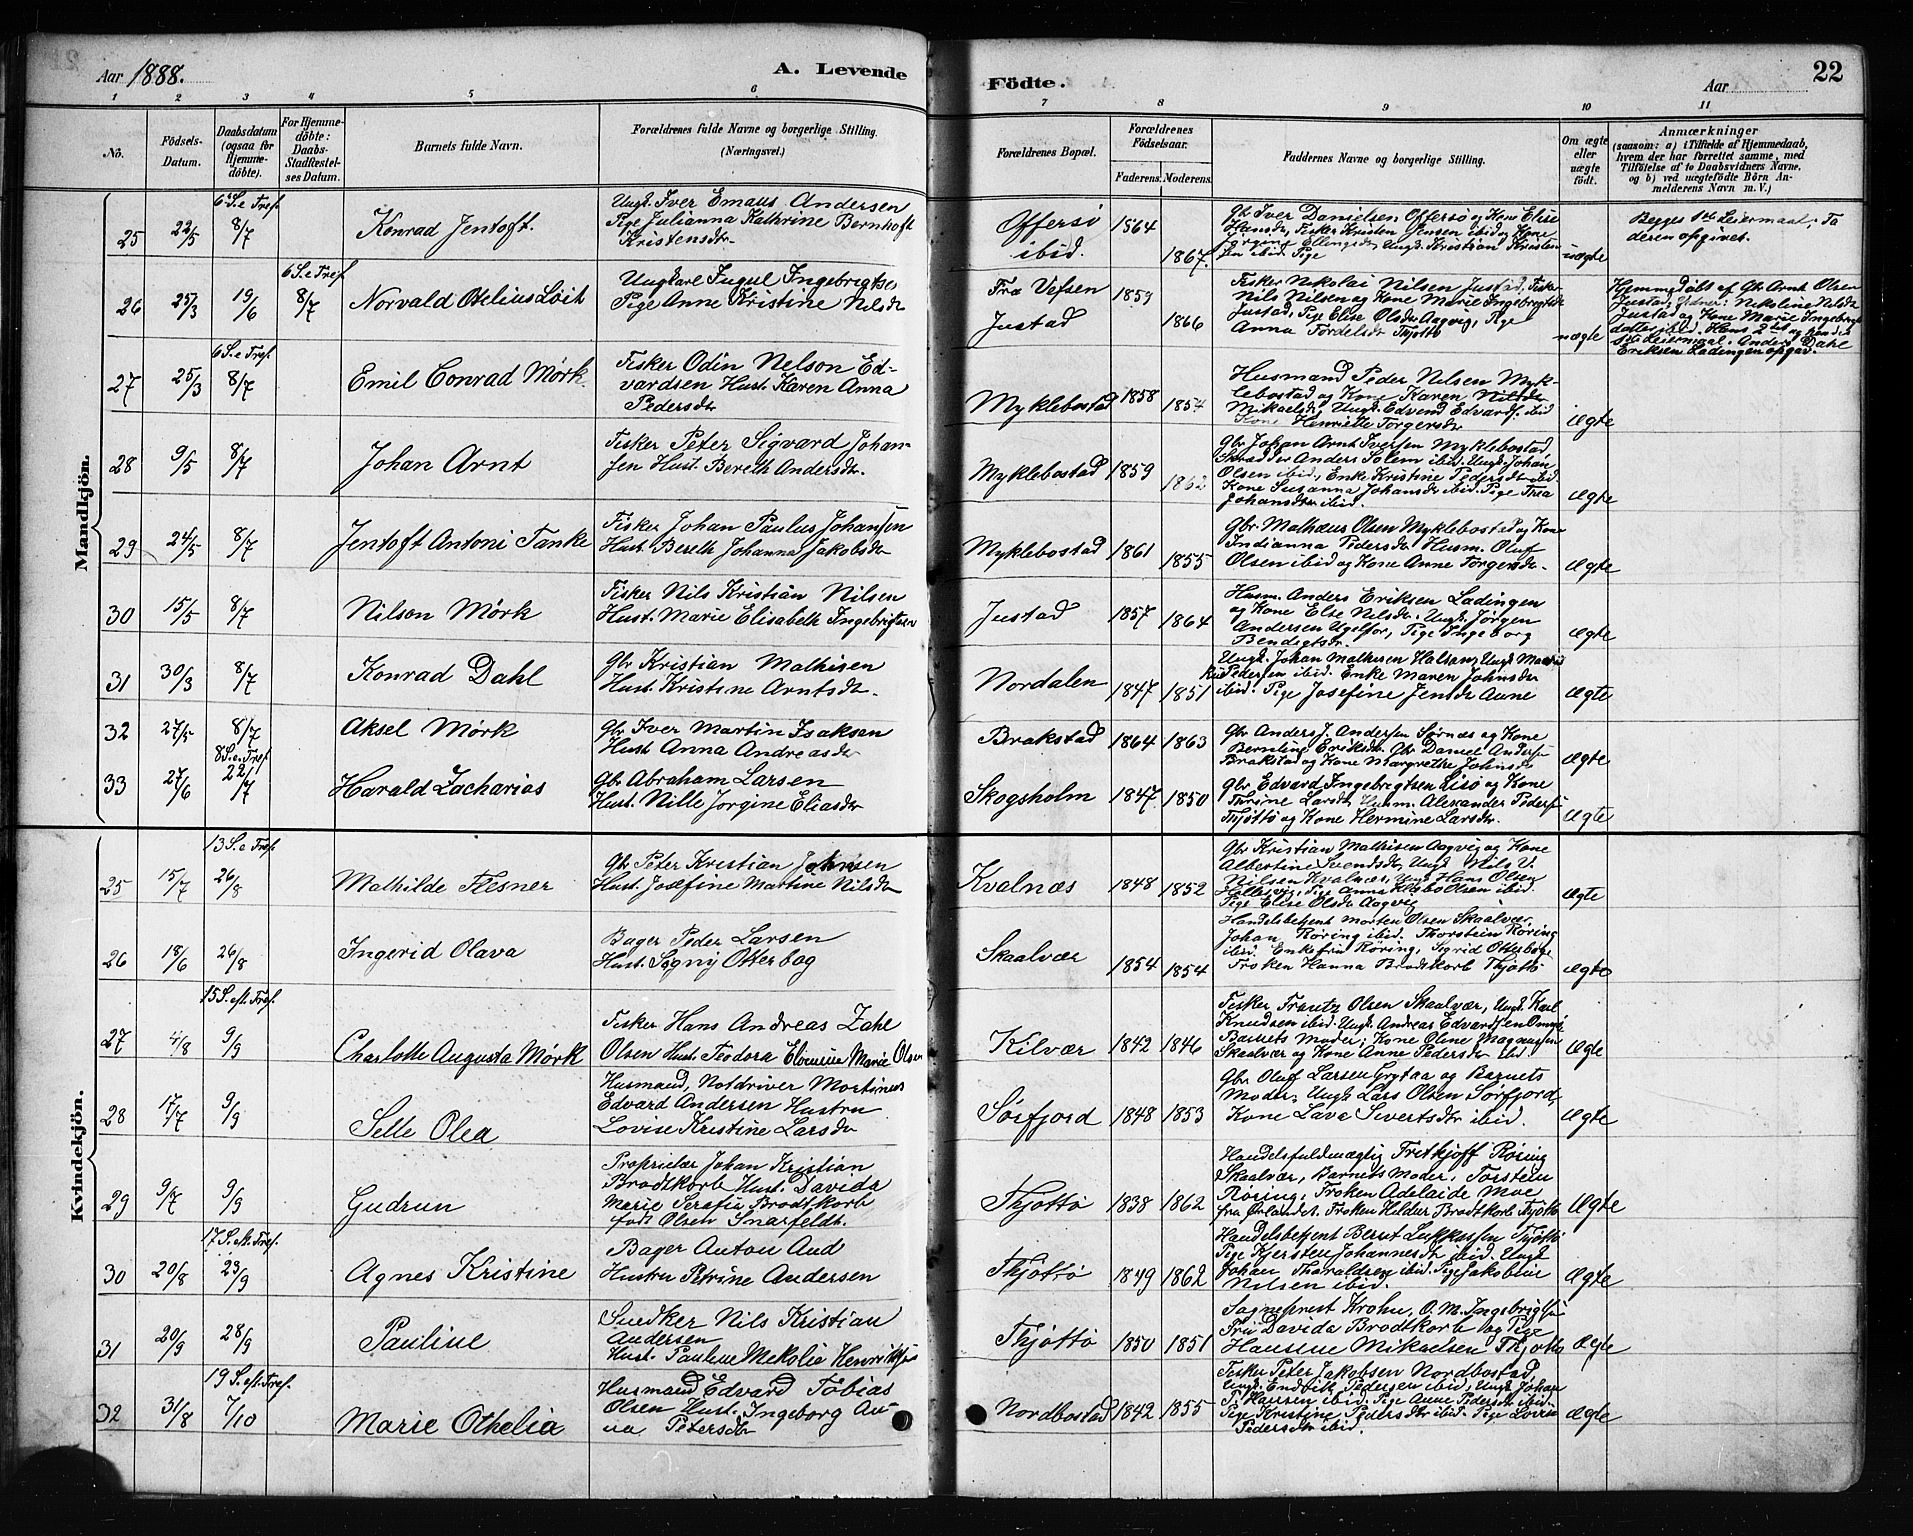 Aar 1888.
A. Levende
Födte.
Aar
22
1 2 3 4 5 6 7 8 9 10 11
No.
Födsels-
Datum.
Daabsdatum
(ogsaa for
Hjemme-
döbte).
For Hjemme-
döbte:
Daabs-
Stadfæstel-
ses Datum.
Barnets fulde Navn.
Forældrenes fulde Navne og borgerlige Stilling.
(Næringsvei.)
Forældrenes Bopæl.
Forældrenes
Födselsaar.
Faderens. Moderens.
Faddernes Navne og borgerlige Stilling.
Om ægte
eller
uægte
født.
Anmærkninger
(saasom: a) i Tilfælde af Hjemmedaab,
hvem der har forrettet samme, med
Tilföielse af to Daabsvidners Navne,
og b) ved uægtefödte Börn An-
melderens Navn m. V.)
Mandkjön.
25 22/5
6 S. e Tref
8/7
Konrad Jentoft.
Ungk. Iver Emaus Andersen
Pige Julianna Kathrine Bernhoft
Kristensdtr.
Offersø
ibid.
1864
1867.
Gbr Iver Danielsen Offersø og Kone Elise
Hansdr, Fisker Kristen Jensen ibid og Kone
Ellengsdr, Ungk. Kristian Kristen
sen ibid. Pige
uægte
Begges 1ste Leiermaal; Fa
deren opgivet.
26 25/3 19/6
6 S. e Tref.
8/7
Norvald Otelius Loit
Ungkarl Ingul Ingebrigtse
Pige Anne Kristine Nilsdr
Fra Vefsen
Justad
1859
1866
Fisker Nikolai Nilsen Justad, Fisker
Nils Nilsen og Kone Marie Ingebrigtsdr
Justad, Pige Elise Olsdr Aagvig, Pige
Anna Tordelsdr Thjøttø
uægte
Hjemmedøbt af Gbr Arnt Olsen
Justad; Vidner: Nikoline Nilsdr
Justad og Kone Marie Ingebrigts
datter ibid. Hans 2det og hendes
1ste Leiermaal. Anders Dahl
Eriksen Ladingen opgav.
27 25/3
6 S. e Tref.
8/7
Emil Conrad Mørk
Fisker Odin Nelson Ed-
vardsen Hust. Karen Anna
Pedersdr
Myklebostad 1858 1854
Husmand Peder Nilsen Myk-
lebostad og Kone Karen Nilsdr
Mikaelsdr, Ungk. Edvend Edvards. ibid
Kone Henriette Torgersdr
Ægte
28 9/5 8/7
Johan Arnt
Fisker Peter Sigvard Johan-
sen Hust. Bereth Andersdr.
Myklebostad 1859 1862
Gbr Johan Arnt Iversen Myklebostad,
Skrædder Anders Solem ibid. Ungk Johan
Olsen ibid, Enke Kristine Pedersdr ibid.
Kone Susanna Johansdr ibid. Pige Thea
Johansdr ibid.
Ægte
29 24/5 8/7
Jentoft Antoni Tanke
Fisker Johan Paulus Johansen
Hust. Bereth Johanna Jakobsdr
Myklebostad 1861 1855
Gbr. Mathæus Olsen Myklebostad og Kone
Indianna Pedersdr Husm. Oluf
Olsen ibid og Kone Anne Torgersdr.
Ægte
30 15/5 8/7
Nilson Mørk
Fisker Nils Kristian Nilsen
Hust. Marie Elisabeth Ingebrigtsen
Justad 1857 1864
Husm. Anders Eriksen Ladingen
og Kone Else Nilsdr, Ungk. Jørgen
Andersen Ugelfor, Pige Ingeborg
Bendigtsdr.
Ægte
31 30/3 8/7
Konrad Dahl
Gbr Kristian Mathisen
Hust. Kristine Arntsdr.
Nordalen 1847 1851
Ungk. Johan Mathisen Halsan, Ungk Mat
Pedersen ibid. Enke Maren Johnsdr
ibid. Pige Josefine Jensdr Aune
Ægte
32 27/5 8/7
Aksel Mørk
Gbr Iver Martin Isaksen
Hust Anna Andreasdr
Brakstad 1864 1863
Gbr Anders J. Andersen Sørnæs og Kone
Berntine Eriksdr. Gbr Daniel Anders.
Brakstad og Kone Margrethe Johnsdr
Ægte
33 27/6
8 S. e. Tref
22/7
Harald Zacharias
Gbr Abraham Larsen
Hust. Nille Jorgine Eliasdr
Skogsholm 1847. 1850
Gbr Edvard Ingebrigtsen Risø og Kone
Thrine Larsdr. Husm. Alexander Peders.
Thjøttø og Kone Hermine Larsdr.
Ægte
Kvindekjön.
25 15/7
13 S. e Tref.
26/8
Mathilde Flesner
Gbr Peter Kristian Johnsen
Hust. Josefine Martine Nilsdr
Kvalnæs 1848 1852
Gbr Kristian Mathisen Aagvig og Kone
Albertine Svendsdr, Ungk Nils V.
Nilsen Kvalnæs, Ungk Hans Olsen
Hellesvig, Pige Anna Olsen ibid.
Pige Elise Olsdr Aagvig
Ægte
26 18/6 26/8
Ingerid Olava
Bager Peder Larsen
Hust. Signy Otterbog
Skaalvær 1854 1854
Handelsbetjent Morten Olsen Skaalvær,
Johan Røring ibid. Thorstein Røring
ibid. Enkefru Røring, Sigrid Otterbog
Frøken Hanna Brodtkorb Thjøttø
Ægte
27 4/8
15 S. eft. Tref.
9/9
Charlotte Augusta Mørk
Fisker Hans Andreas Zahl
Olsen Hust. Teodora Elovine Marie Olsen
Kilvær 1842 1846
Fisker Frantz Olsen Skaalvær, Ungk. Karl
Knudsen ibid. Ungk. Andreas Edvardsen Omnes
Barnets Moder; Kone Oline Magnussen
Skaalvær og Kone Anne Pedersdr ibid.
Ægte
28 17/7 9/9
Selle Olea
Husmand, Notdriver Martinus
Edvard Andersen Hustru
Lovise Kristine Larsdr
Sørfjord 1848 1853
Gbr Oluf Larsen Grytaa og Barnets
Moder, Ungk Lars Olsen Sørfjord,
Kone Lava Sivertsdr ibid.
Ægte
29 9/7 9/9
Gudrun
Proprietær Johan Kristian
Brodtkorb Hust. Davida
Marie Serafia Brodtkorb
født Olsen Snarfeldt.
Thjøttø 1838 1862
Handelsfuldmægtig Fritkjoff Røring
Skaalvær, Barnets Moder, Torstein
Røring, Frøken Adelaide Moe
fra Ørlandet. Frøken Hildur Brodtkorb Thjøttø
Ægte
30 20/8
17 S. eft. Tref.
23/9
Agnes Kristine
Bager Anton Aud
Hustru Petrine Andersen
Thjøttø 1849 1862
Handelsbetjent Bernt Lukkassen Thjøttø
Pige Kjersten Johannesdr ibid. Ungk
Johan Tharaldsen ibid. Pige Jakobine
Nilsen ibid.
Ægte
31 20/9 28/9
Pauline
Snedker Nils Kristian
Andersen
Hust. Pauline Mekolie Henriks.
Thjøttø 1850 1851
Sogneprest Krohn, O. M. Ingebrigts.
Fru Davida Brodtkorb og Pige
Hansine Mikaelsen Thjøttø
Ægte
32 31/8
19 S. eft. Tref.
7/10
Marie Othelia
Husmand Edvard Tobias
Olsen Hust. Ingeborg An-
na Petersdr
Nordbostad 1842 1855
Fisker Peter Jakobsen Nordbostad,
Ungk. Endvik Pedersen ibid, Ungk Johan
P. Hansen ibid. Pige Anne Pedersdr ibid.
Pige Kristine Pedersdr ibid. Pige Lovise
Pedersdr ibid.
Ægte